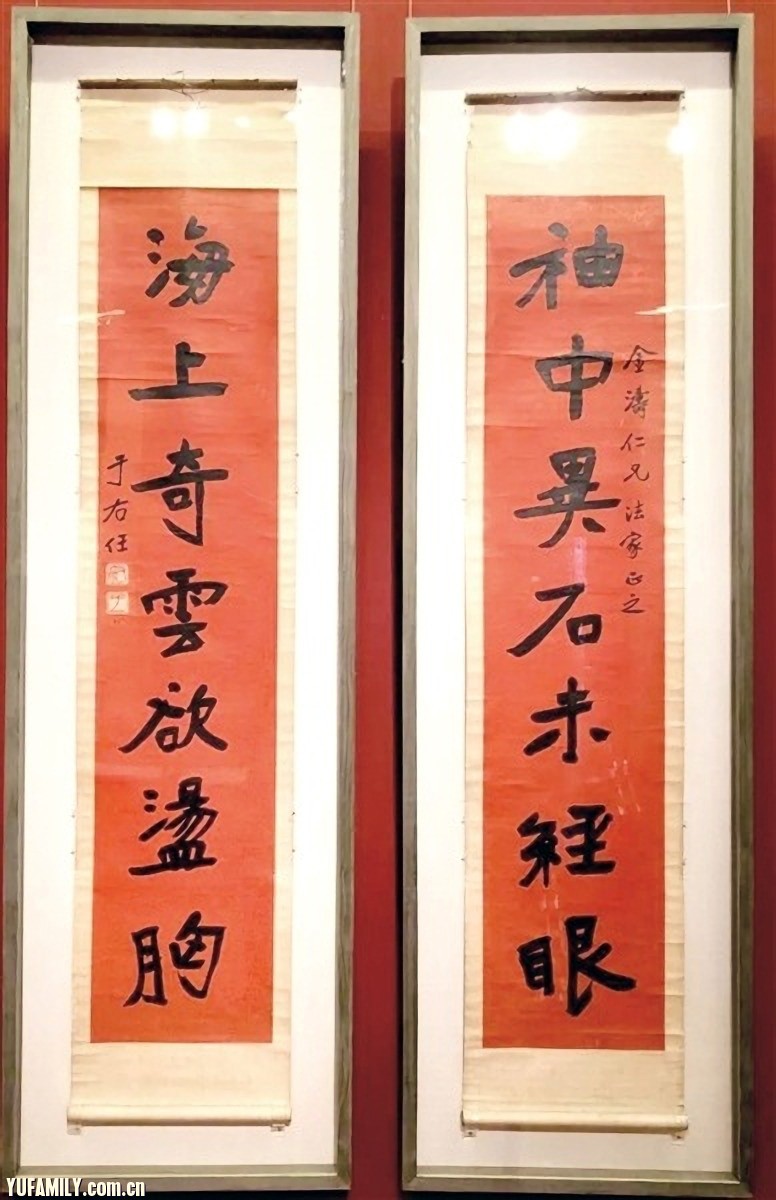 袖中異石未經眼
金濤仁兄法家正之
海上奇雲欲盪胸
于右任
YUFAMILY.com.cn